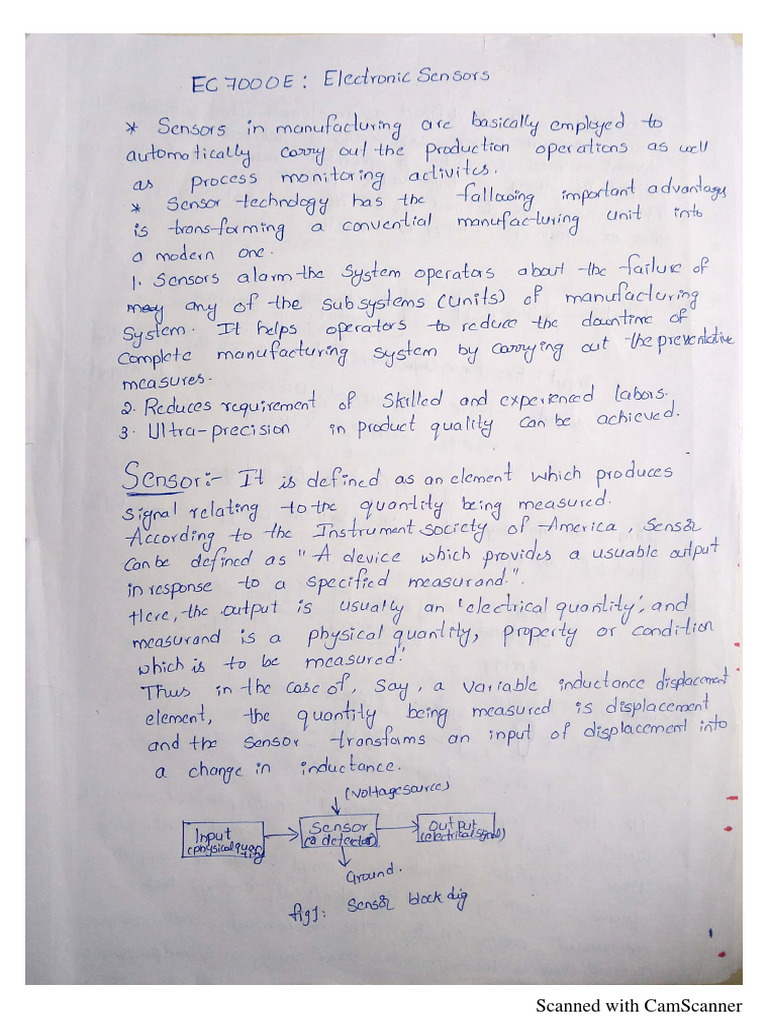 EC7000E: Electronic Sensors
* Sensors in manufacturing are basically employed to
automatically carry out the production operations as well
as process monitoring activites.
* Sensor technology has the fallowing important advantages
is trans-forming a convential manufacturing unit into
a modern one.
1. Sensors alarm the System operators about the failure of
may any of the subsystems (units) of manufacturing
system. It helps operators to reduce the downtime of
Complete manufacturing system by carrying out the preventative
measures.
2. Reduces requirement of skilled and experienced labors.
3. Ultra-precision in product quality can be achieved.
Sensor:- It is defined as an element which produces
signal relating to the quantity being measured.
According to the Instrument society of America, Sensor
Can be defined as "A device which provides a usuable output
in response to a specified measurand."
Here, the output is usually an 'electrical quantity', and
measurand is a physical quantity, property or condition
which is to be measured."
Thus in the case of, Say, a variable inductance displacement
element, the quantity being measured is displacement
and the sensor transforms an input of displacement into
a change in inductance.
(Voltage source)
Input Sensor Output
(physical quantity) (or detector) (electrical signal)
Ground.
fig1: Sensor block dig
Scanned with CamScanner